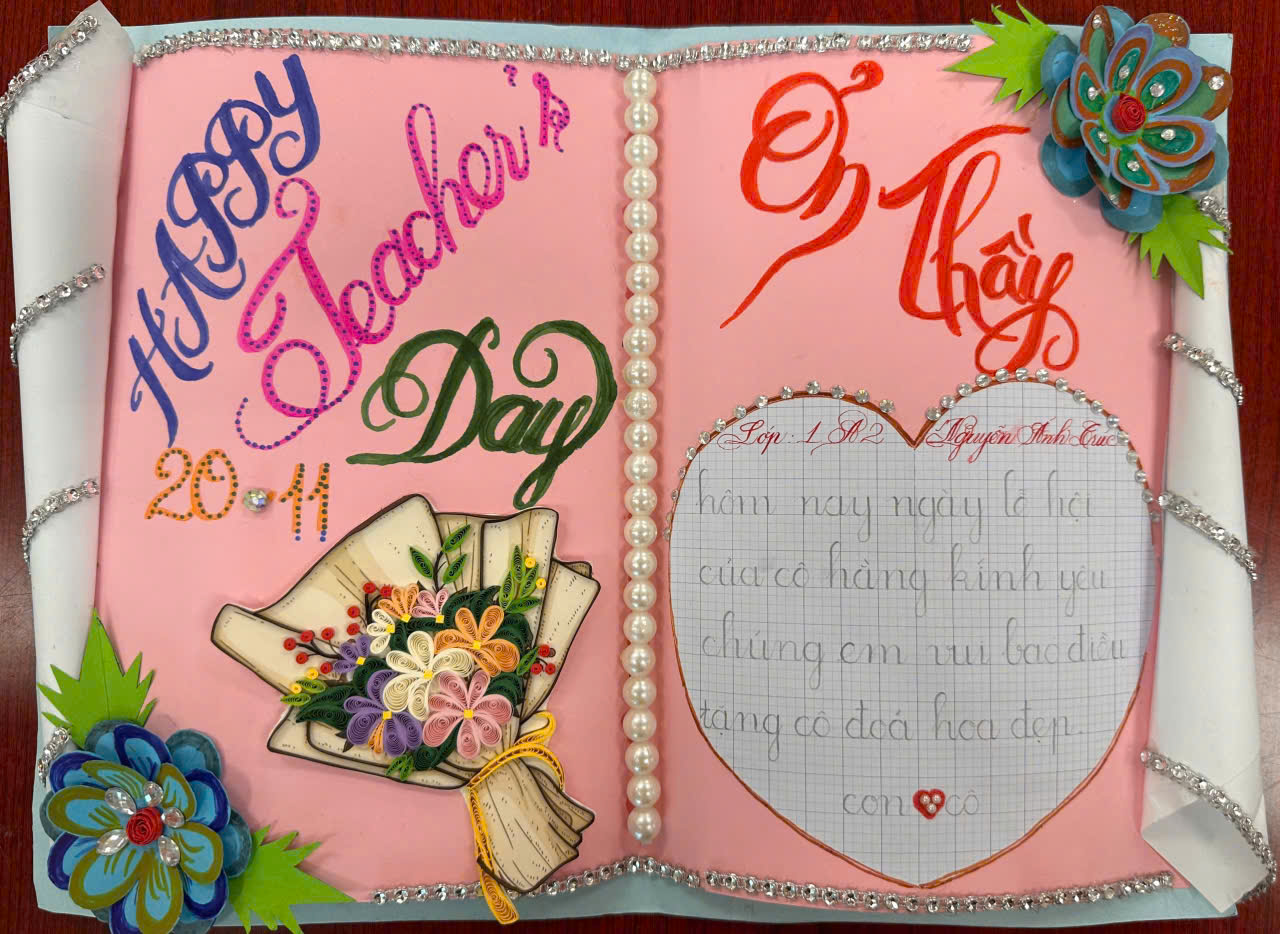 HAPPY
Teacher's
Day
20 • 11
Ơn
Thầy
Lớp : 1 A2 Nguyễn Ánh Trúc
hôm nay ngày lễ hội
của cô hằng kính yêu
chúng em vui bao điều
tặng cô đoá hoa đẹp.
con cô